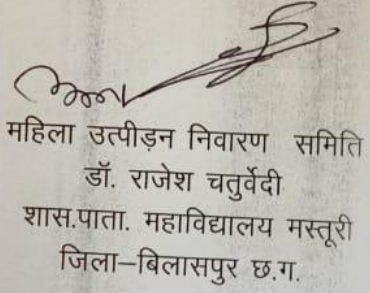 महिला उत्पीड़न निवारण समिति
डॉ. राजेश चतुर्वेदी
शास.पाता. महाविद्यालय मस्तूरी
जिला–बिलासपुर छ.ग.